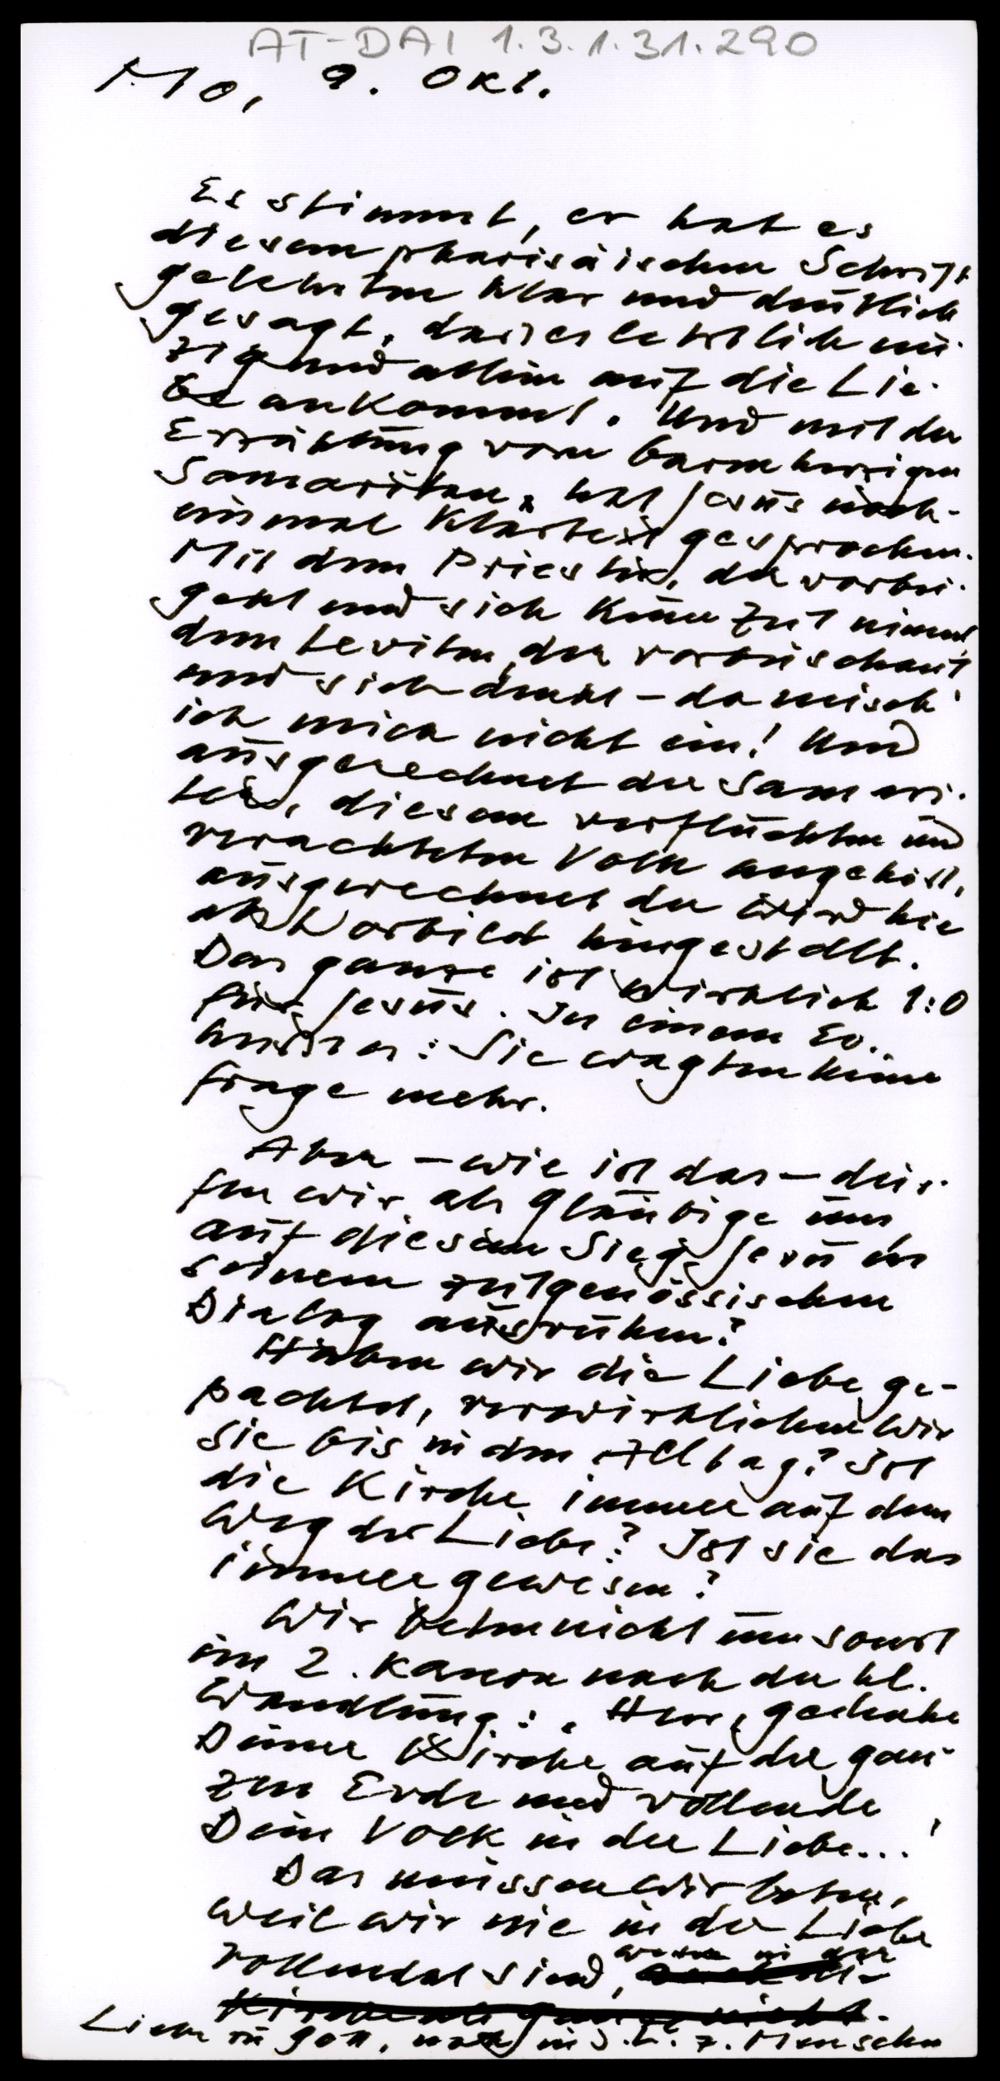 AT-DAI 1.3.1.31.290
Mo, 9. Okt.
Es stimmt, er hat es
diesem pharisäischen Schrift
gelehrten klar und deutlich
gesagt, dass es letztlich ein-
zig und allein auf die Lie-
be ankommt. Und mit der
Erzählung vom barmherzigen
Samaritan, hat Jesus noch-
einmal Klartext gesprochen.
Mit dem Priester, der vorbei-
geht und sich keine Zeit nimmt
dem Leviten, der vorbeischaut
und sich denkt – da misch'
ich mich nicht ein! Und
ausgerechnet der Samari-
ter, diesem verfluchten und
verachteten Volk angehört,
ausgerechnet der wird hier
als Vorbild hingestellt.
Das ganze ist wirklich 1:0
für Jesus. In einem Ev.
heisst es: Sie wagten keine
Frage mehr.
Aber – wie ist das – dür-
fen wir als Gläubige uns
auf diesem Sieg Jesu in
seinem zeitgenössischen
Dialog ausruhen?
Haben wir die Liebe ge-
pachtet, verwirklichen wir
sie bis in den Alltag? Ist
die Kirche immer auf dem
Weg der Liebe? Ist sie das
immer gewesen?
Wir beten nicht umsonst
im 2. Kanon nach der hl.
Wandlung: „Herr, gedenke
Deiner Kirche auf der gan-
zen Erde und vollende
Dein Volk in der Liebe...'
Das müssen wir beten,
weil wir nie in der Liebe
vollendet sind, weder in der
Kirche als ganze nicht.
Liebe zu Gott, noch in d. L. z. Menschen